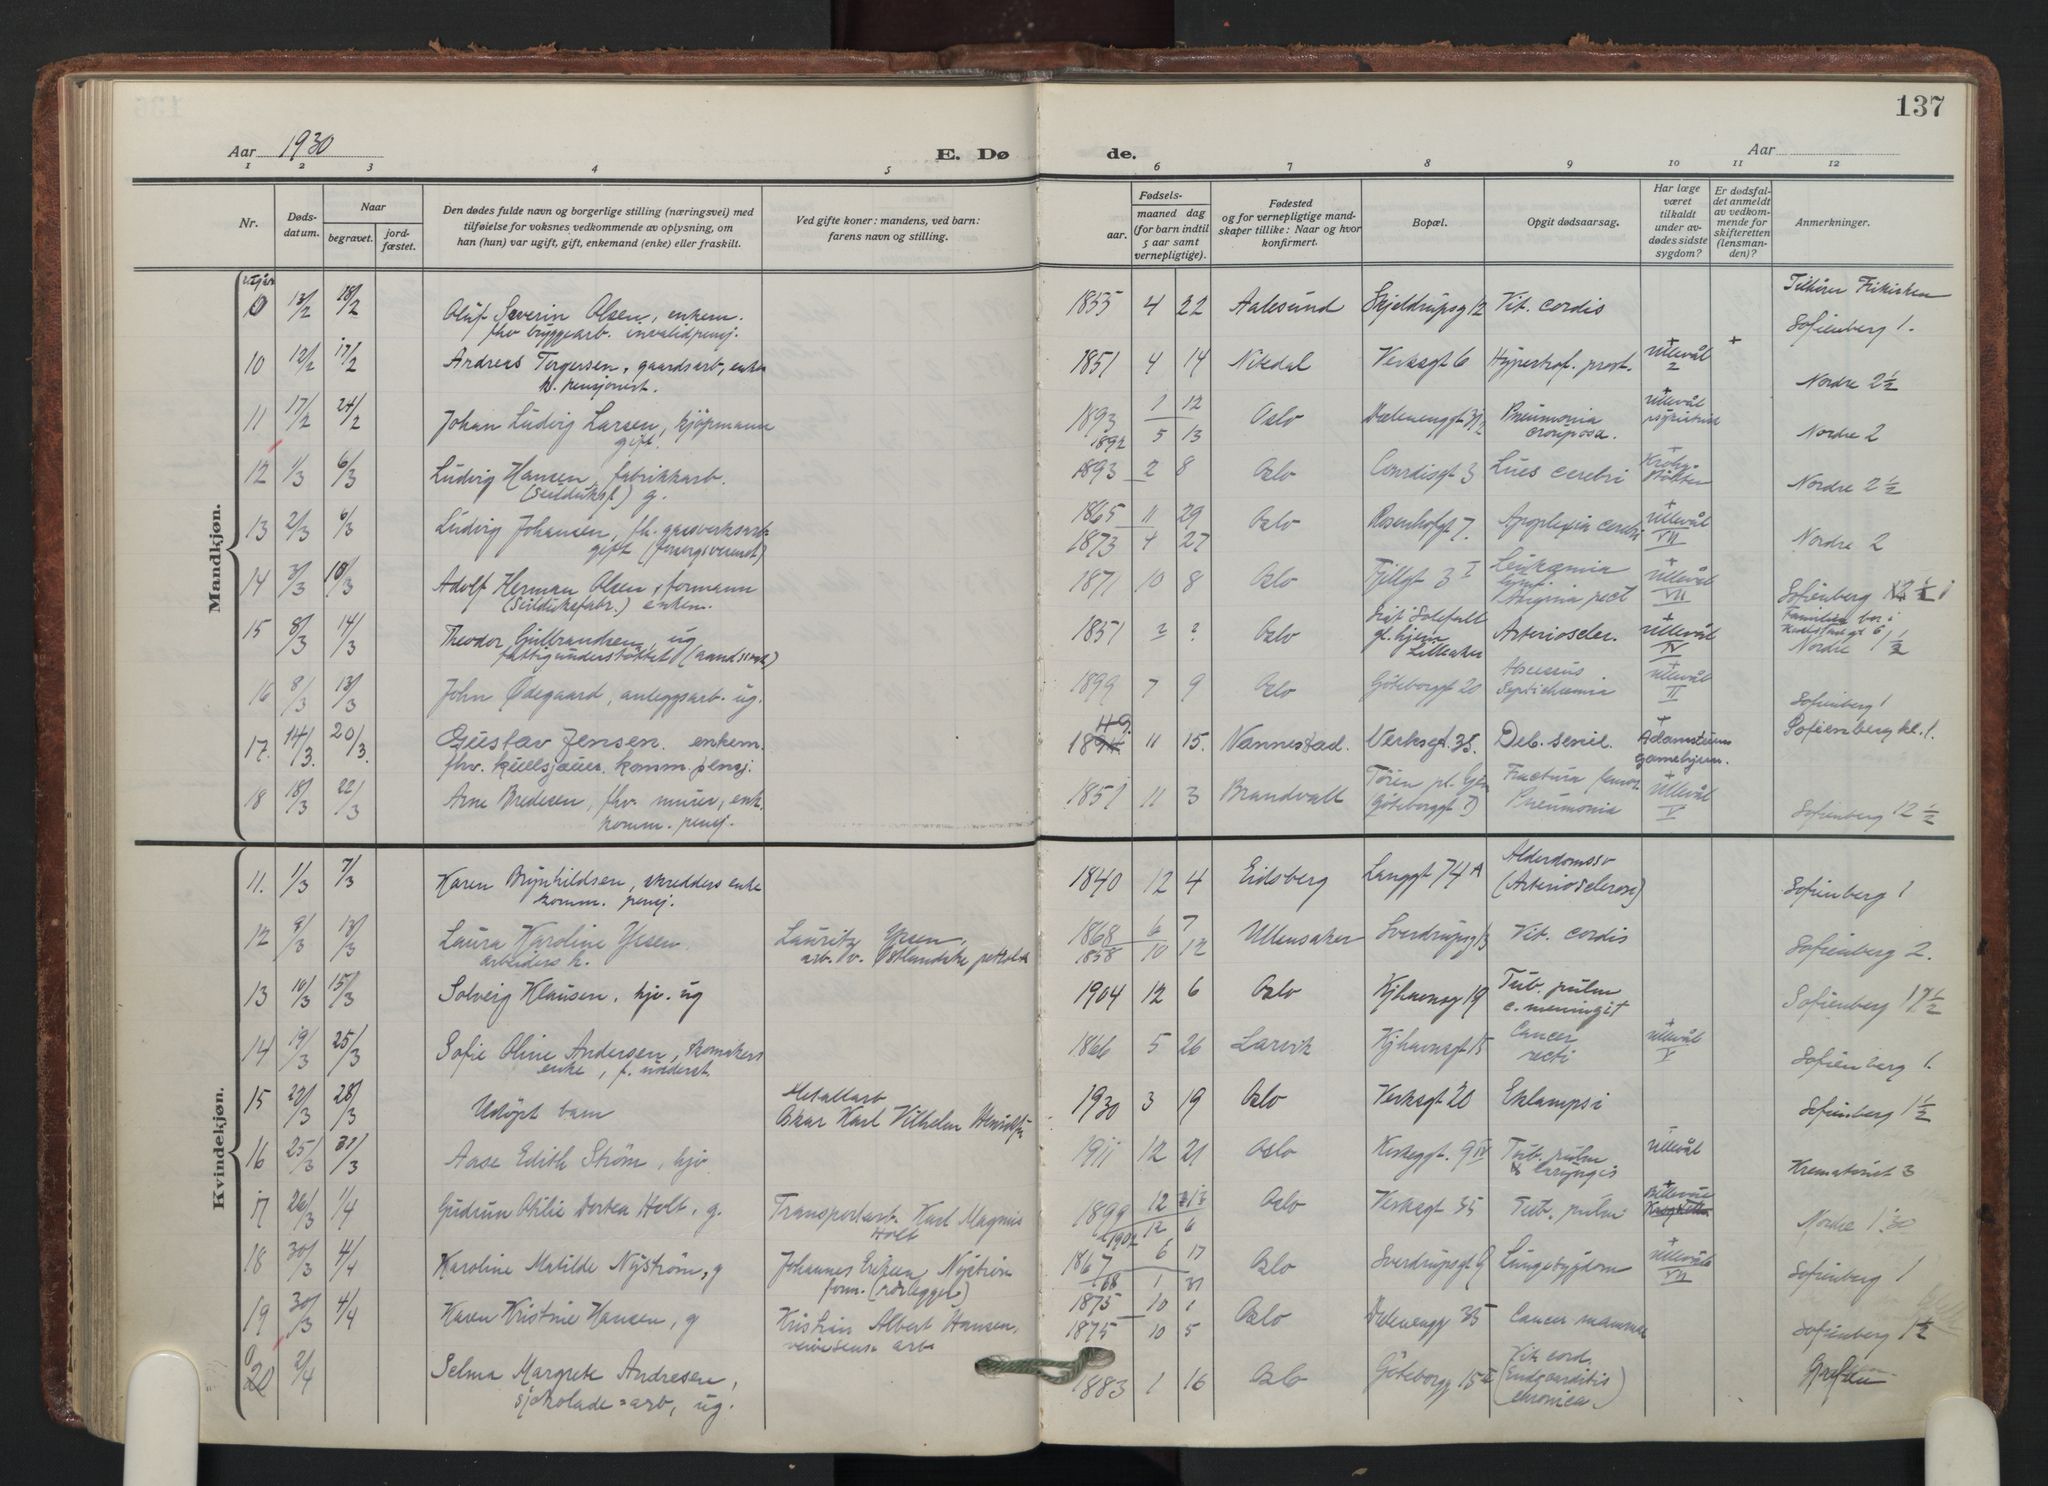 137
Aar 1930
E. Dø
de.
Aar
1 2 3 4 5
6 7 8 9 10 11 12
Nr.
Døds-
datum.
Naar
begravet.
jord-
fæstet.
Den dødes fulde navn og borgerlige stilling (næringsvei) med
tilføielse for voksnes vedkommende av oplysning, om
han (hun) var ugift, gift, enkemand (enke) eller fraskilt.
Ved gifte koner: mandens, ved barn:
farens navn og stilling.
Fødsels-
aar.
maaned dag
(for barn indtil
5 aar samt
vernepligtige).
Fødested
og for vernepligtige mand-
skaper tillike: Naar og hvor
konfirmert.
Bopæl.
Opgit dødsaarsag.
Har læge
været
tilkaldt
under av-
dødes sidste
sygdom?
Er dødsfal-
det anmeldt
av vedkom-
mende for
skifteretten
(lensman-
den)?
Anmerkninger.
Mandkjøn.
0 13/2 18/2 Oluf Severin Olsen, enkem. 1855 4 22 Aalesund Skjeldrupsg 12 Vit. cordis Tilhører Frikirken
fhv bryggearb. invalidpensj. Sofienberg 1.
10 12/2 17/2 Andreas Torgersen, gaardsarb, enkem 1851 4 14 Nitedal Verksgt 6 Hypertrof. prost. + Ullevål 2 +
k. pensjonist. Nordre 2 1/2
11 17/2 24/2 Johan Ludvig Larsen, kjøpmann 1893 1 12 Oslo Dælenenggt Pneumonia + Ullevål
gift 1892 5 13 crouposa. Nordre 2
12 1/3 6/3 Ludvig Hansen, fabrikkarb. 1893 2 8 Oslo Conradisgt 3 Lues cerebri + Krohg-støtten
(Seilduksf) g. Nordre 2 1/2
13 2/3 6/3 Ludvig Johansen, fh. gassverksarb. 1865 11 29 Oslo Rosenhofgt 7. Apoplexia cerebri + Ullevål VII
gift 1873 4 27 Nordre 2
14 3/3 10/3 Adolf Herman Olsen, formann 1871 10 8 Oslo Fjellgt 3 I Leukæmia + Ullevål VII
(Seildukfabr.) enkem. lymf. Angina pect Sofienberg
15 8/3 14/3 Theodor Gulbrandsen, ug 1851 ? ? Oslo Sist i Solefall Arterioscler. + Ullevål IV Familien bor i
gl. hjem Lilleaker Nordre 1/2
16 8/3 13/3 John Ødegaard, anleggsarb. ug. 1899 7 9 Oslo Göteborggt 20 Abscessus + Ullevål II
Septichæmia Sofienberg 1
17. 14/3. 20/3. Gustav Jensen. enkem. 49. 11 15. Nannestad. Verksgt. 35. Deb. senil. + Adamstuens Sofienberg kl. 1.
fhv. kullkjører. komm. pensj. Gamlehjem.
18 18/3 22/3 Arne Bredesen, fhv. murer, enk. 1851 11 3 Brandvall Tøien pl. hjem Fractura femor. + Ullevål V
komm. pensj. (Göteborggt 7) Pneumonia Sofienberg 12 1/2
Kvindekjøn.
11. 1/3 7/3 Karen Brynhildsen, skredders enke 1840 12 4 Eidsberg Langgt 74 A Alderdomssv
komm. pensj. (Arteriosclerose) Sofienberg 1
12 9/3 13/3 Laura Karoline Ipsen Lauritz Ipsen, 1868 6 7 Ullensaker Sverdrupsg 13 Vit. cordis
arbeiders h. arb. v. Østlandske petrol 1858 10 12 Sofienberg 2.
13 10/3 15/3 Solveig Klausen, hjv. ug 1904 12 6 Oslo Kjhavnsg 19 Tub. pulm
c. meningit Sofienberg 1/2
14 19/3 25/3 Sofie Oline Andersen, skomakers 1866 5 26 Larvik Kjhavnsgt 15 Cancer + Ullevål V
enke, f. underst. recti Sofienberg 1.
15 22/3 28/3 Udøpt barn Metallarb 1930 3 19 Oslo Verksgt 20 Eklampsi
Oskar Karl Vilhelm Henriksen Sofienberg 1 1/2
16 25/3 31/3 Aase Edith Strøm, hjv. 1911 12 21 Oslo Verksgt. 9 IV Tub. pulm Ullevål
& laryngis Krematoriet 3
17 26/3 1/4 Gudrun Otilie Dortea Holt, g. Transportarb. Karl Magnus 1899 12 Oslo Verksgt 35 Tub. pulm + Ullevål
Holt 1902 12 6 Nordre 1 30
18 30/3 4/4 Karoline Matilde Nystrøm, g Johannes Eriksen Nystrøm 1867 6 17 Oslo Sverdrupsgt 9 Lungesygdom + Ullevål VII
form. (rørlegger) 68 1 31 Sofienberg 1
19 30/3 4/4 Karen Kristine Hansen, g Kristian Albert Hansen, 1875 10 1 Oslo Dælenengg 35 Cancer mammæ
veivesens arb 1875 10 5 Sofienberg 1 1/2
20 2/4 Selma Margrete Andresen, 1883 1 16 Oslo Göteborgg 15 II Vit. cord. Grefsen
sjokolade-arb, ug. (Endocarditis
chronica)